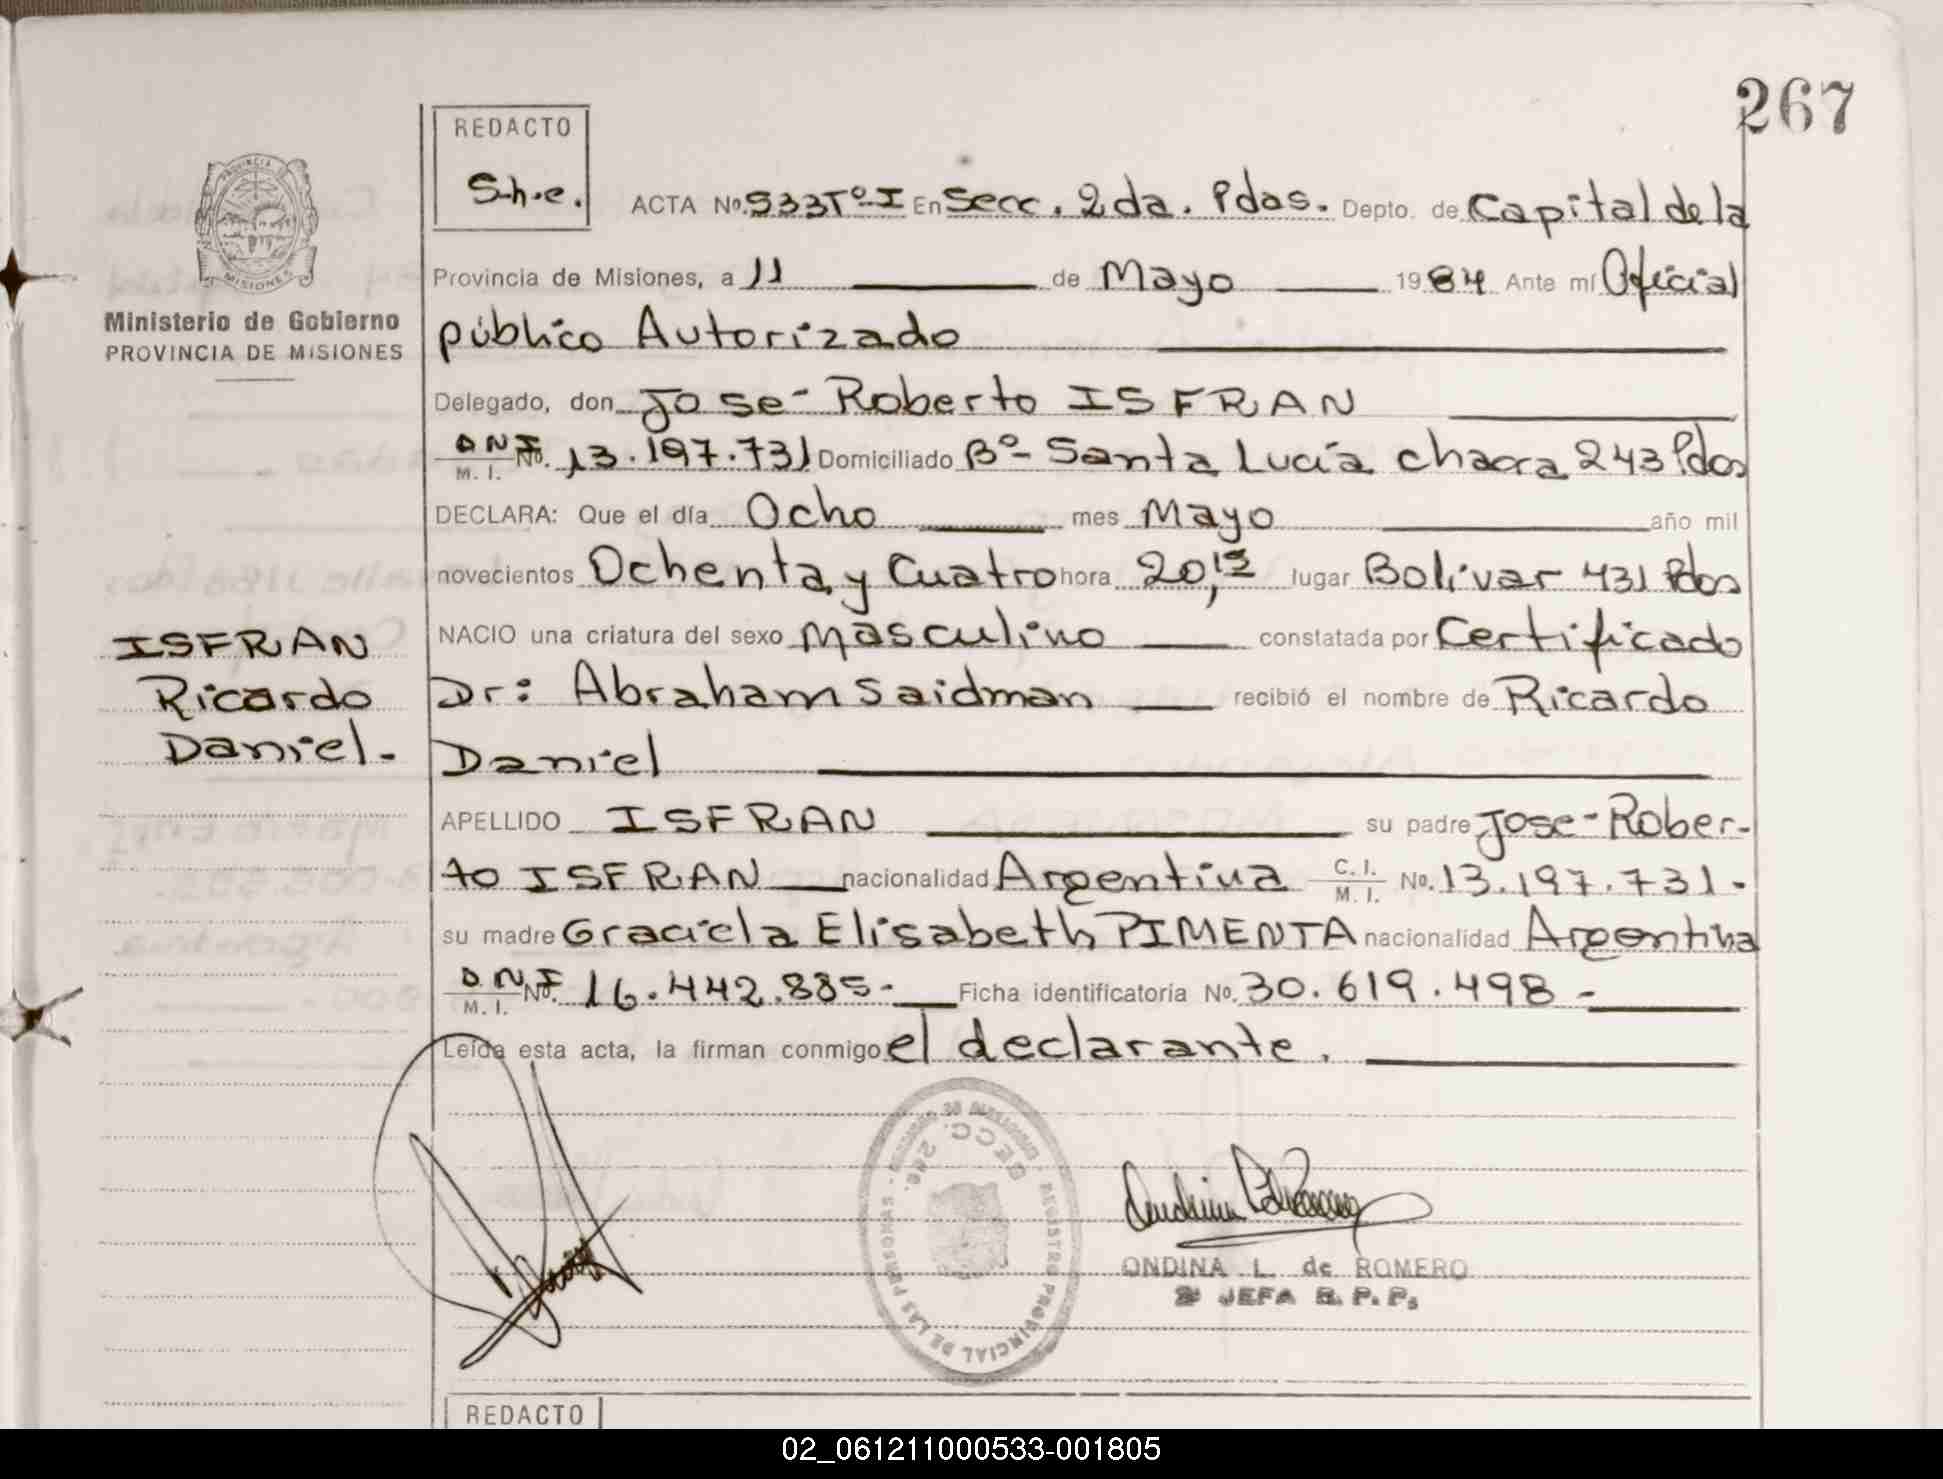 267
REDACTO
S.h.e.
ACTA Nº. 533 Tº I En Secc. 2da. Pdas. Depto. de Capital de la
Provincia de Misiones, a 11 de Mayo 1984 Ante mí Oficial
público Autorizado
PROVINCIA
MISIONES
Ministerio de Gobierno
PROVINCIA DE MISIONES
Delegado, don Jose-Roberto ISFRAN
D N I M. I. Nº. 13.197.731 Domiciliado Bº- Santa Lucía chacra 243 Pdas
DECLARA: Que el día Ocho mes Mayo año mil
novecientos Ochenta y Cuatro hora 20,15 lugar Bolivar 431 Pdas
NACIO una criatura del sexo Masculino constatada por Certificado
Dr: Abraham Saidman recibió el nombre de Ricardo
Daniel
ISFRAN
Ricardo
Daniel.
APELLIDO ISFRAN su padre Jose-Rober-
to ISFRAN nacionalidad Argentina C. I. M. I. Nº. 13.197.731.
su madre Graciela Elisabeth PIMENTA nacionalidad Argentina
D. N. I M. I. Nº. 16.442.885- Ficha identificatoria Nº. 30.619.498-
Leída esta acta, la firman conmigo el declarante.
REGISTRO PROVINCIAL DE LAS PERSONAS
SECC. 2da.
ONDINA L. de ROMERO
JEFA R. P. P.
REDACTO
02_061211000533-001805